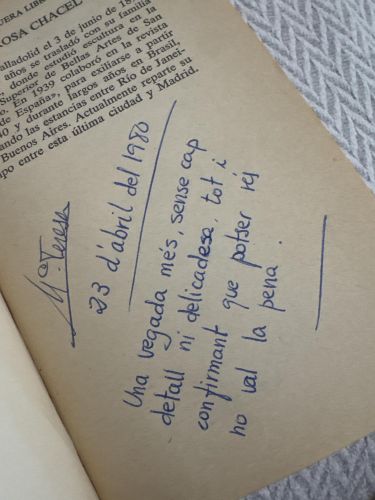 UERA LIBR
OSA CHACEL
alladolid el 3 de junio de 18
años se trasladó con su familia
, donde estudió escultura en la
Superior de Bellas Artes de San
o. En 1939 colaboró en la revista
de España», para exiliarse a partir
40 y durante largos años en Brasil,
ando las estancias entre Río de Janei-
Buenos Aires. Actualmente reparte su
po entre esta última ciudad y Madrid.
Mª Teresa
23 d'abril del 1980
Una vegada més, sense cap
detall ni delicadesa, tot i
confirmant que potser rés
no val la pena.